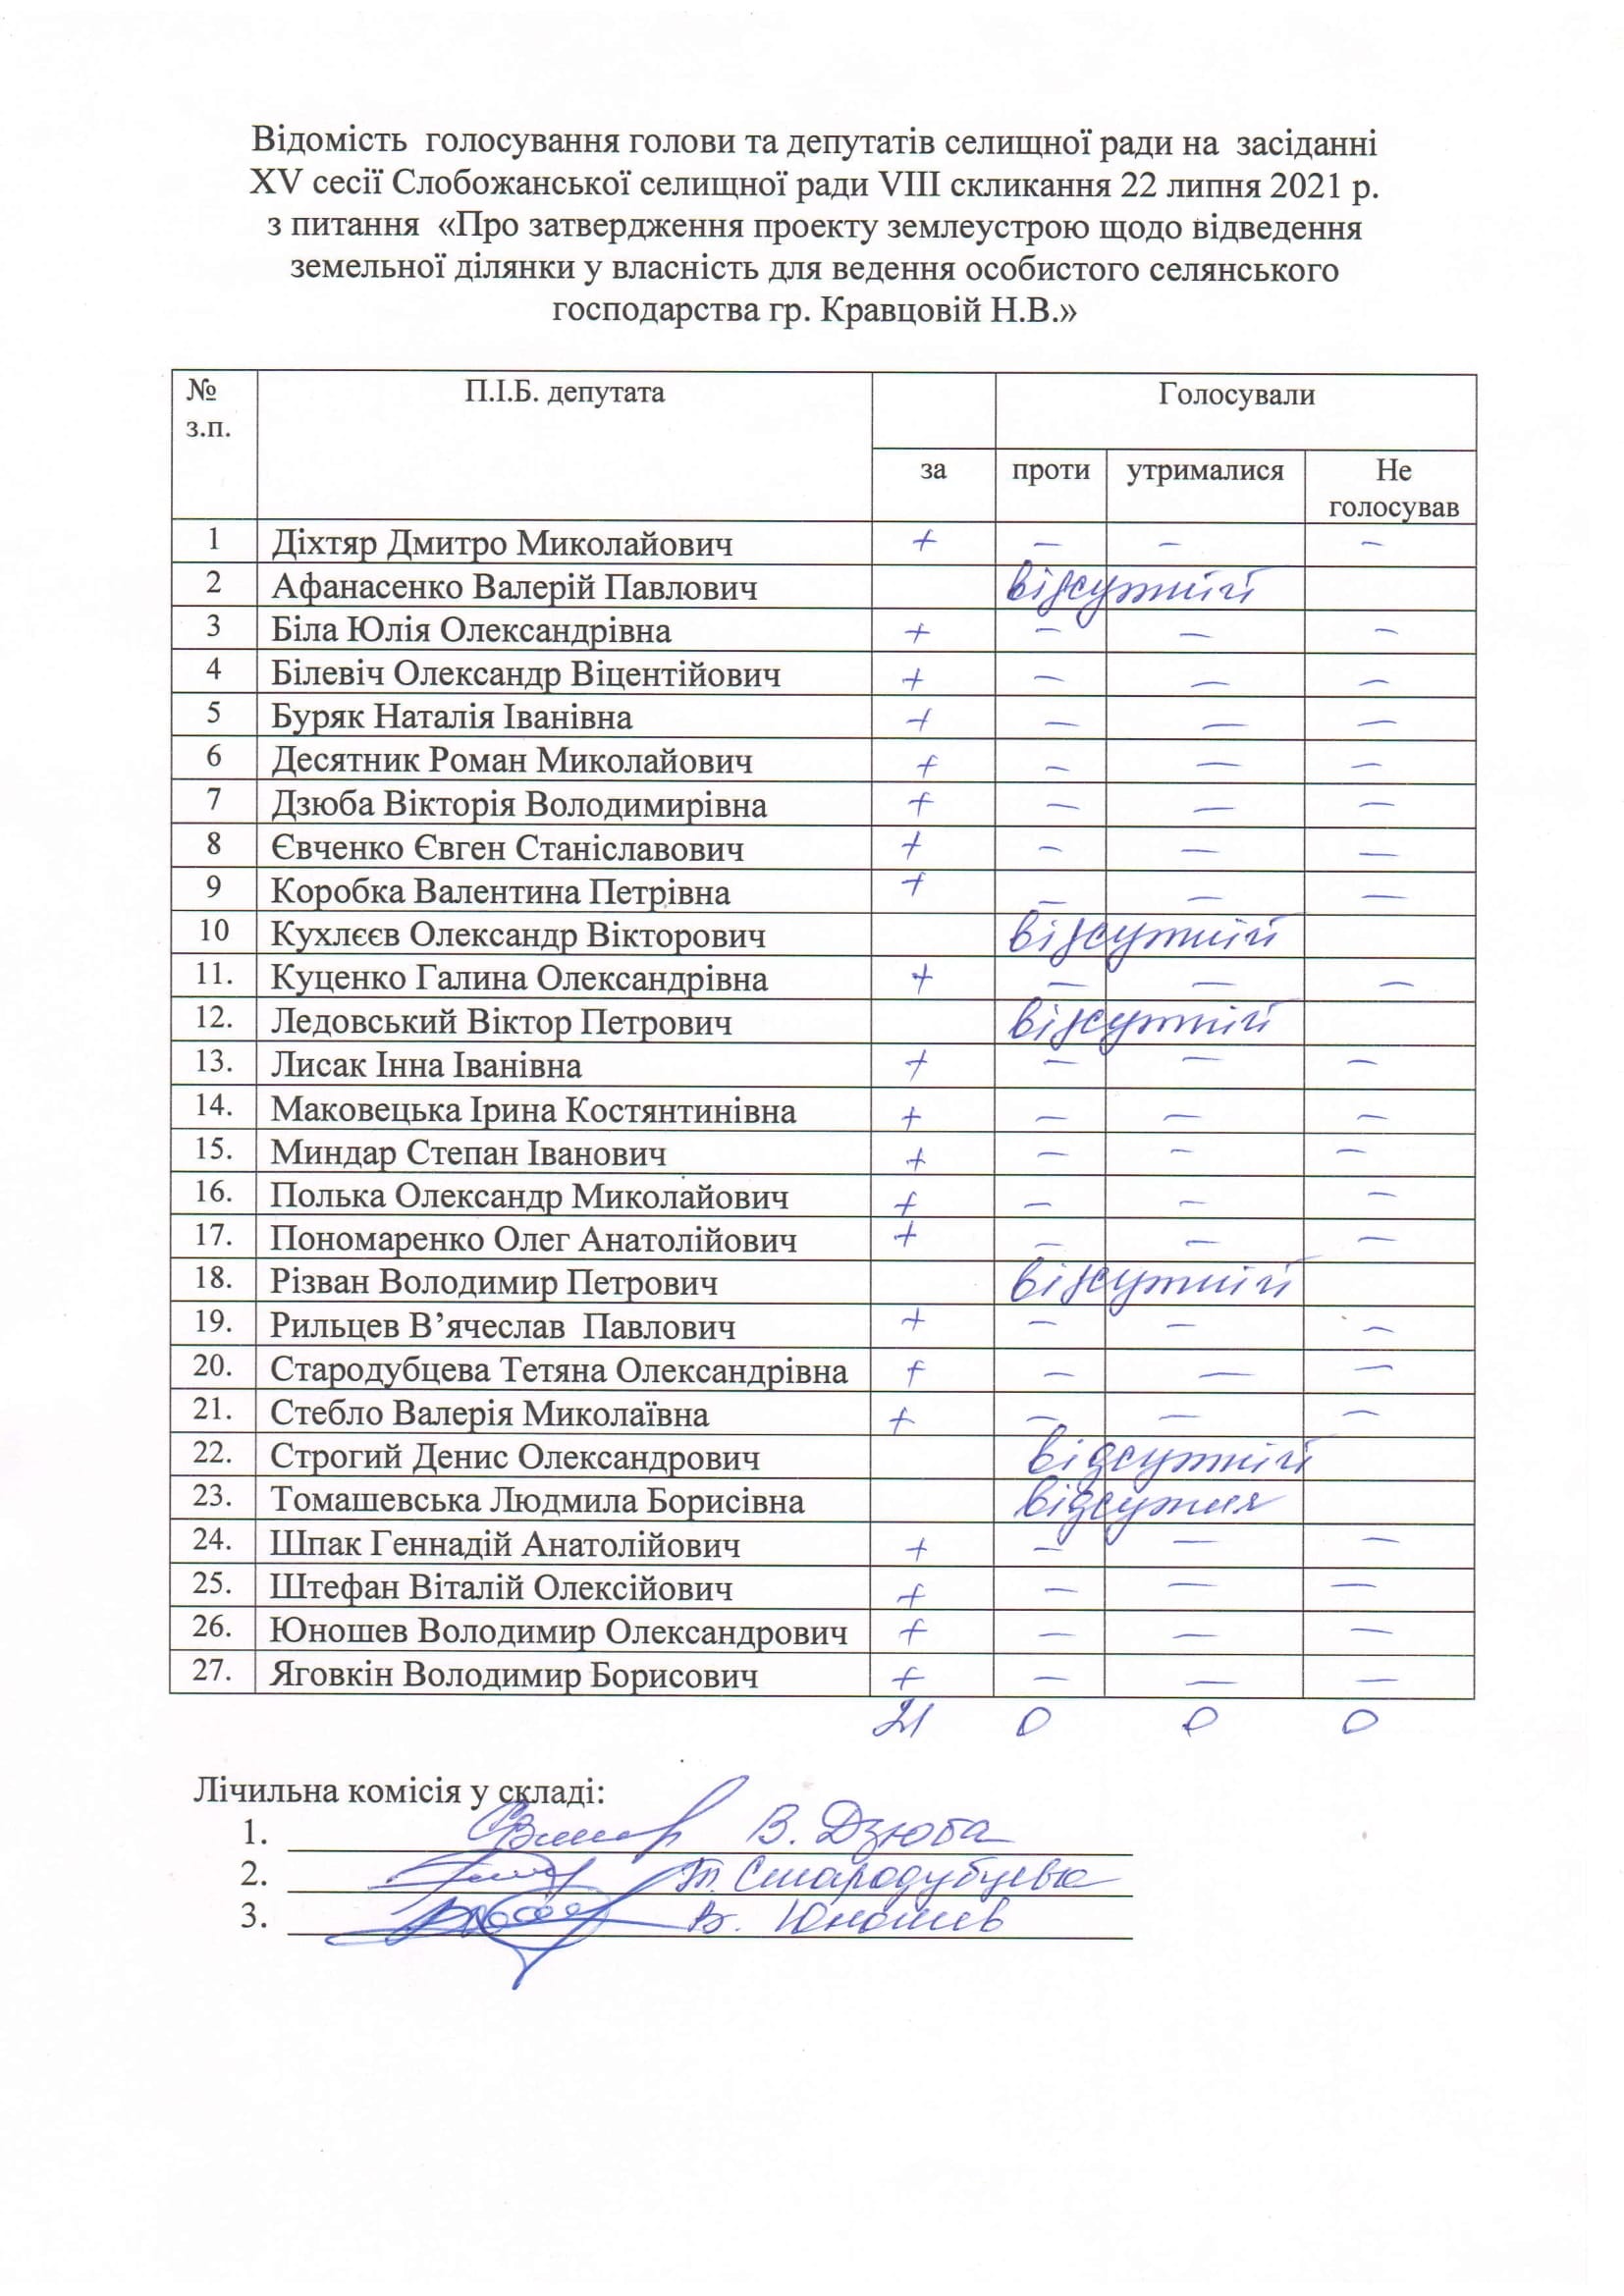 Відомість голосування голови та депутатів селищної ради на засіданні
XV сесії Слобожанської селищної ради VIII скликання 22 липня 2021 р.
з питання «Про затвердження проекту землеустрою щодо відведення
земельної ділянки у власність для ведення особистого селянського
господарства гр. Кравцовій Н.В.»
№ з.п. П.І.Б. депутата Голосували
за проти утрималися Не голосував
1 Діхтяр Дмитро Миколайович + – – –
2 Афанасенко Валерій Павлович відсутній
3 Біла Юлія Олександрівна + – – –
4 Білевіч Олександр Віцентійович + – – –
5 Буряк Наталія Іванівна + – – –
6 Десятник Роман Миколайович + – – –
7 Дзюба Вікторія Володимирівна + – – –
8 Євченко Євген Станіславович + – – –
9 Коробка Валентина Петрівна + – – –
10 Кухлєєв Олександр Вікторович відсутній
11. Куценко Галина Олександрівна + – – –
12. Ледовський Віктор Петрович відсутній
13. Лисак Інна Іванівна + – – –
14. Маковецька Ірина Костянтинівна + – – –
15. Миндар Степан Іванович + – – –
16. Полька Олександр Миколайович + – – –
17. Пономаренко Олег Анатолійович + – – –
18. Різван Володимир Петрович відсутній
19. Рильцев В’ячеслав Павлович + – – –
20. Стародубцева Тетяна Олександрівна + – – –
21. Стебло Валерія Миколаївна + – – –
22. Строгий Денис Олександрович відсутній
23. Томашевська Людмила Борисівна відсутня
24. Шпак Геннадій Анатолійович + – – –
25. Штефан Віталій Олексійович + – – –
26. Юношев Володимир Олександрович + – – –
27. Яговкін Володимир Борисович + – – –
21 0 0 0
Лічильна комісія у складі:
1. В. Дзюба
2. Т. Стародубцева
3. В. Юношев